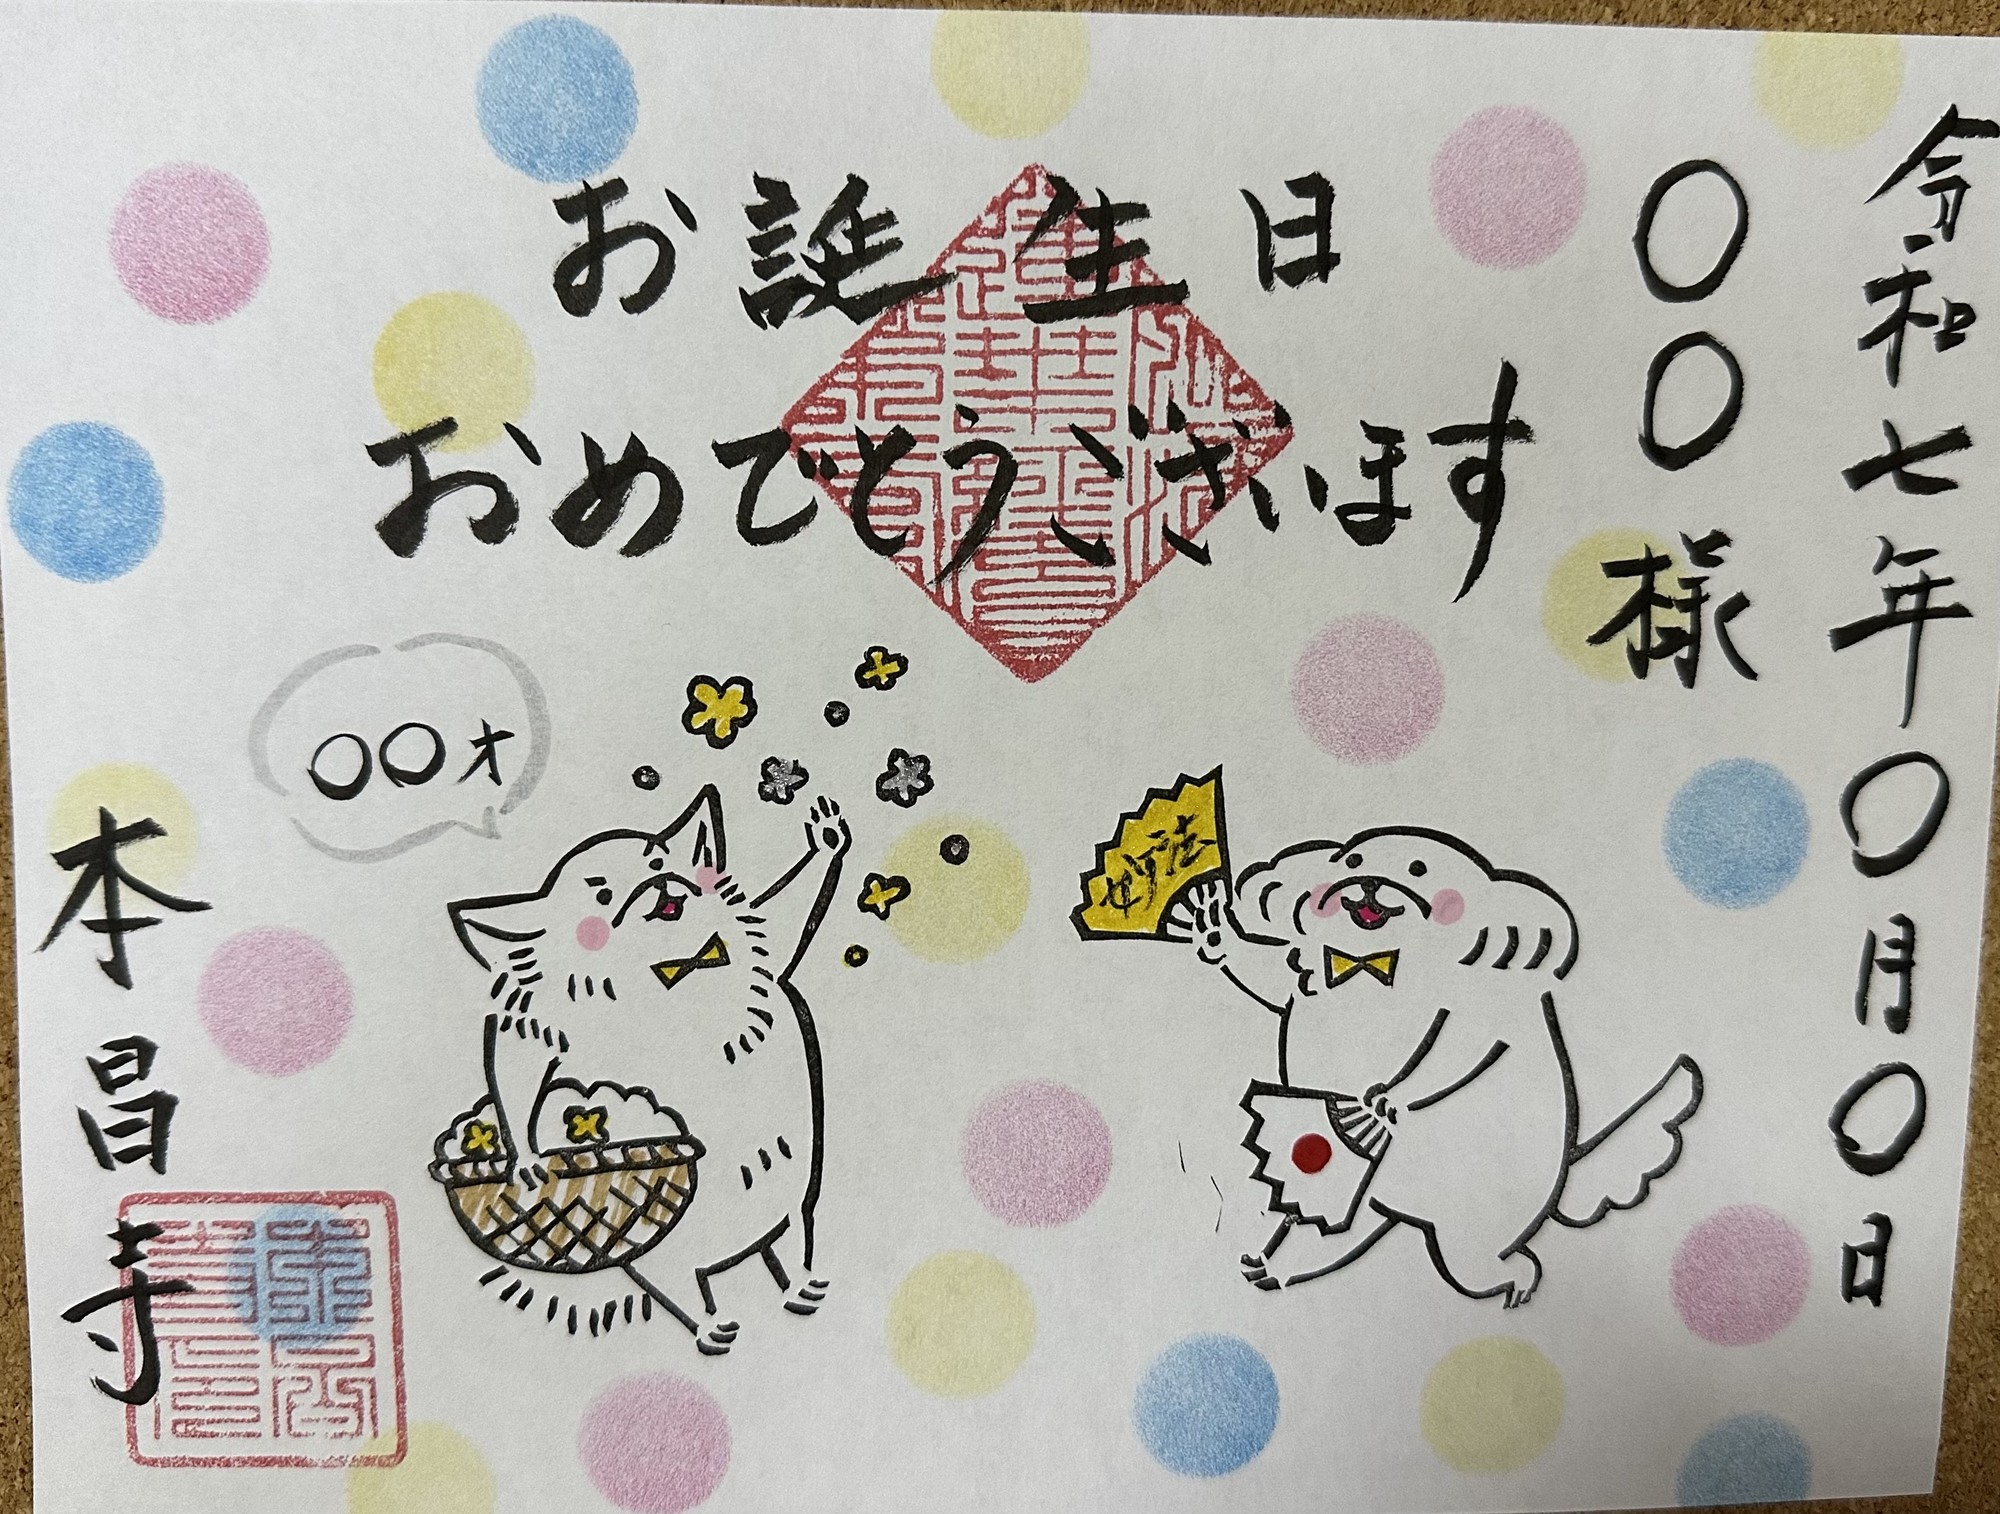 令和七年〇月〇日
〇〇様
お誕生日
おめでとうございます
〇〇才
妙法
本昌寺